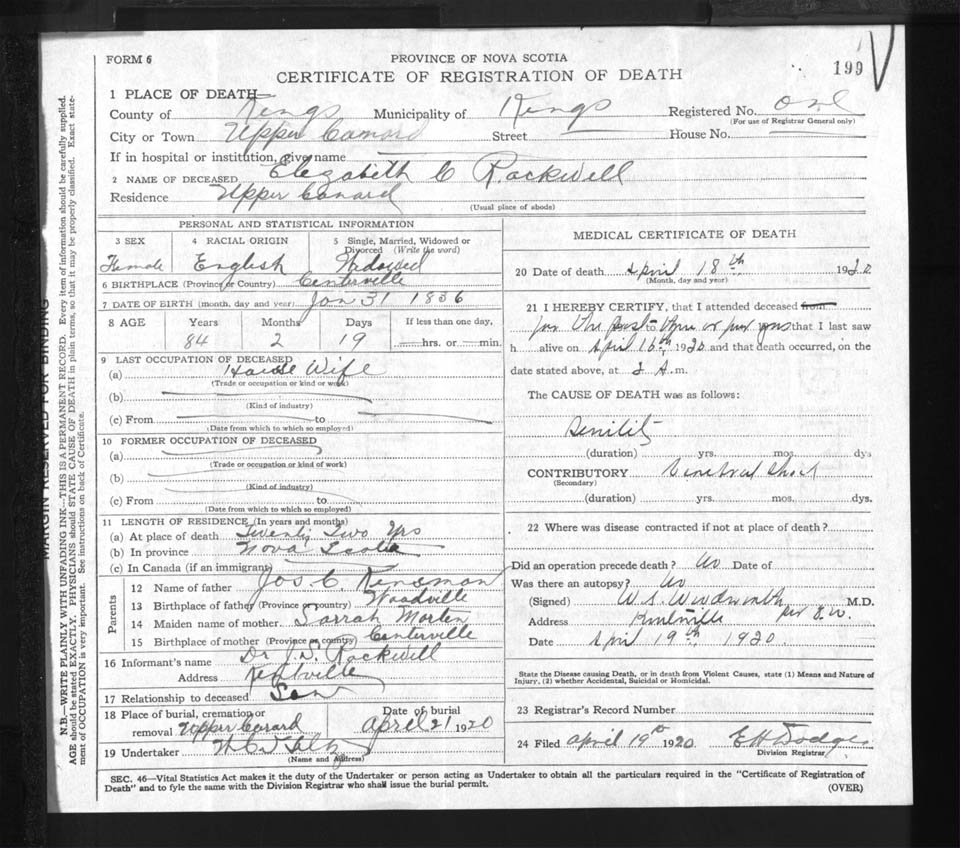 FORM 6
PROVINCE OF NOVA SCOTIA
199
CERTIFICATE OF REGISTRATION OF DEATH
1 PLACE OF DEATH
County of Kings Municipality of Kings Registered No. one
(For use of Registrar General only)
City or Town Upper Canard Street House No.
If in hospital or institution, give name
2 NAME OF DECEASED Elezabith C Rackwell
Residence Upper Canard
(Usual place of abode)
PERSONAL AND STATISTICAL INFORMATION
3 SEX 4 RACIAL ORIGIN 5 Single, Married, Widowed or Divorced (Write the word)
Female English Widowed
6 BIRTHPLACE (Province or Country) Centerville
7 DATE OF BIRTH (month, day and year) Jan 31 1836
8 AGE Years Months Days If less than one day,
84 2 19 hrs. or min.
9 LAST OCCUPATION OF DECEASED
(a) House Wife
(Trade or occupation or kind of work)
(b)
(Kind of industry)
(c) From to
(Date from which to which so employed)
10 FORMER OCCUPATION OF DECEASED
(a)
(Trade or occupation or kind of work)
(b)
(Kind of industry)
(c) From to
(Date from which to which so employed)
11 LENGTH OF RESIDENCE (In years and months)
(a) At place of death Twenty Two Yrs
(b) In province Nova Scotia
(c) In Canada (if an immigrant)
Parents
12 Name of father Jos C. Kinsman
13 Birthplace of father (Province or country) Woodville
14 Maiden name of mother Sarrah Morten
15 Birthplace of mother (Province or country) Centerville
16 Informant's name Dr J. S. Rockwell
Address Kentville
17 Relationship to deceased Son
18 Place of burial, cremation or removal Upper Canard Date of burial April 21 1920
19 Undertaker
(Name and Address)
MEDICAL CERTIFICATE OF DEATH
20 Date of death April 18th 1920
(Month, day and year)
21 I HEREBY CERTIFY, that I attended deceased from
for the past to three or four yrs that I last saw
h alive on April 16th 1920 and that death occurred, on the
date stated above, at 2 A.m.
The CAUSE OF DEATH was as follows:
Senility
(duration) yrs. mos. dys
CONTRIBUTORY
(Secondary)
(duration) yrs. mos. dys.
22 Where was disease contracted if not at place of death?
Did an operation precede death? No Date of
Was there an autopsy? No
(Signed) W. S. Woodworth M.D.
per
Address Kentville
Date April 19th 1920
State the Disease causing Death, or in death from Violent Causes, state (1) Means and Nature of
Injury, (2) whether Accidental, Suicidal or Homicidal.
23 Registrar's Record Number
24 Filed April 19th 1920 E H Dodge
Division Registrar
SEC. 46—Vital Statistics Act makes it the duty of the Undertaker or person acting as Undertaker to obtain all the particulars required in the "Certificate of Registration of
Death" and to fyle the same with the Division Registrar who shall issue the burial permit.
(OVER)
MARGIN RESERVED FOR BINDING
N.B.—WRITE PLAINLY WITH UNFADING INK—THIS IS A PERMANENT RECORD. Every item of information should be carefully supplied.
AGE should be stated EXACTLY. PHYSICIANS should STATE CAUSE OF DEATH in plain terms, so that it may be properly classified. Exact state-
ment of OCCUPATION is very important. See instructions on back of Certificate.